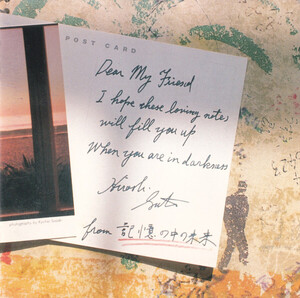 POST CARD
Dear My Friend
I hope these loving notes
will fill you up
When you are in darkness
Hiroshi
Sato
from 記憶の中の未来